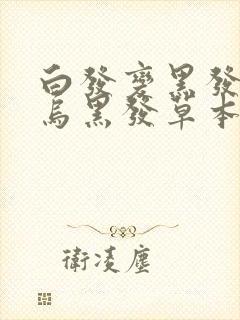 白發變黑發
烏黑發草本
衛凌塵